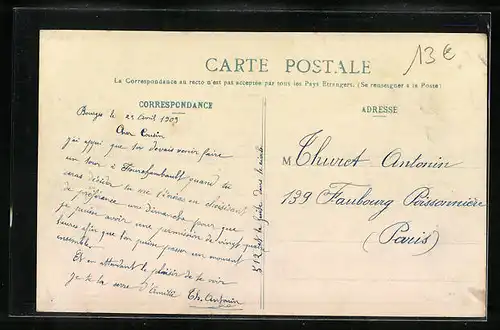 13€
CARTE POSTALE
La Correspondance au recto n'est pas acceptée par tous les Pays Étrangers. (Se renseigner à la Poste)
CORRESPONDANCE
Bourges le 22 Avril 1909
Cher Cousin
j'ai appris que tu devais venir faire
un tour à Fourchambault quand tu
seras décidé tu me l'écriras en choisissant
de préférence un dimanche pour que
je puisse avoir une permission de vingt quatre
heures afin que l'on puisse passer un moment
ensemble.
Et en attendant le plaisir de te voir
Je te la serre d'amitié Th. Antonin
ADRESSE
M Thuret Antonin
139 Faubourg Poissonnière
(Paris)